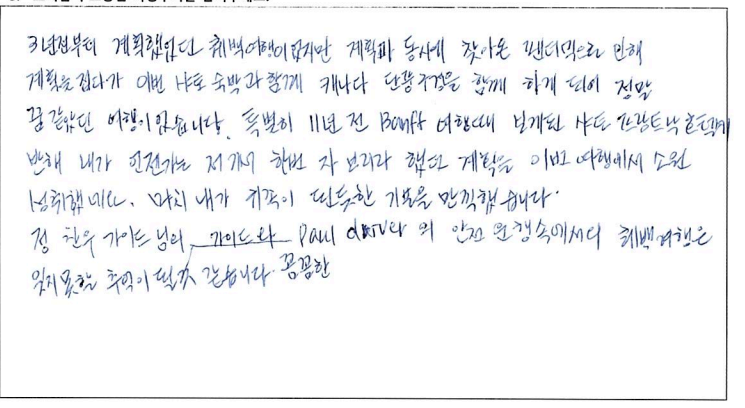 3년전부터 계획했었던 퀘백여행이었지만 계획과 동시에 찾아온 팬더믹으로 인해
계획을 접다가 이번 샤또 숙박과 함께 캐나다 단풍구경을 함께 하게 되어 정말
꿈 같았던 여행이었습니다. 특별히 11년 전 Banff 여행때 보게된 샤또 프랑트낙 호텔에
반해 내가 언젠가는 저기서 한번 자 보리라 했던 계획을 이번 여행에서 소원
성취했네요. 마치 내가 귀족이 된듯한 기분을 만끽했습니다.
정 찬우 가이드님의 가이드와 Paul driver 의 안전 운행속에서의 퀘백여행은
잊지 못할 추억이 될것 같습니다. 꼼꼼한